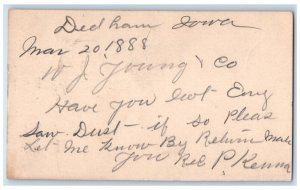 Dedham Iowa
Mar 20 1888
W J Young & Co
Have you Got Eny
Saw Dust - if so Pleas
Let Me Know By Return Male
You Rec P. Kenna